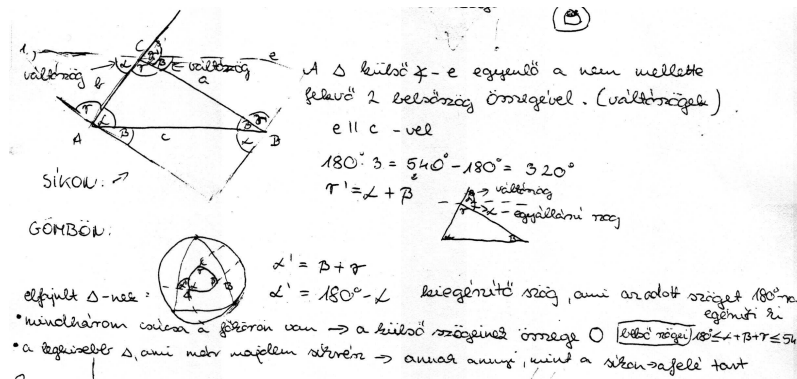 1.,
C
e
váltószög
α γ β
váltószög
b
a
γ α
β
A
c
β γ
α
B
A Δ külső ∢-e egyenlő a nem mellette
fekvő 2 belsőszög összegével. (váltószögek)
e || c - vel
180°·3 = 540° - 180° = 320°
γ' = α + β
SÍKON:
→ váltószög
α - egyállású szög
GÖMBÖN:
α' = β + γ
α' = 180° - α
kiegészítő szög, ami az adott szöget 180°-ra
egészíti ki
elfajult Δ-nek:
• mindhárom csúcsa a főkörön van → a külső szögeinek összege 0
belső szögei 180° ≤ α + β + γ ≤ 54
• a legkisebb Δ, ami már majdnem síkrész → annak annyi, mint a síkon → afelé tart